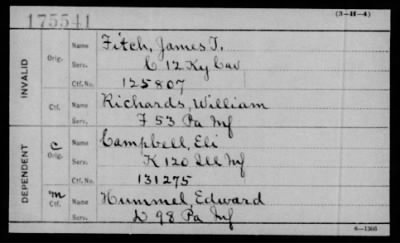 175541 (3-H-4)
INVALID
Orig. Name Fitch, James T.
Serv. C 12 Ky Cav
Ctf. No. 125807
Ctf. Name Richards, William
Serv. F 53 Pa Inf
DEPENDENT
C Orig. Name Campbell, Eli
Serv. K 120 Ill Inf
Ctf. No. 131275
m Ctf. Name Hummel, Edward
Serv. D 98 Pa Inf
6-1366